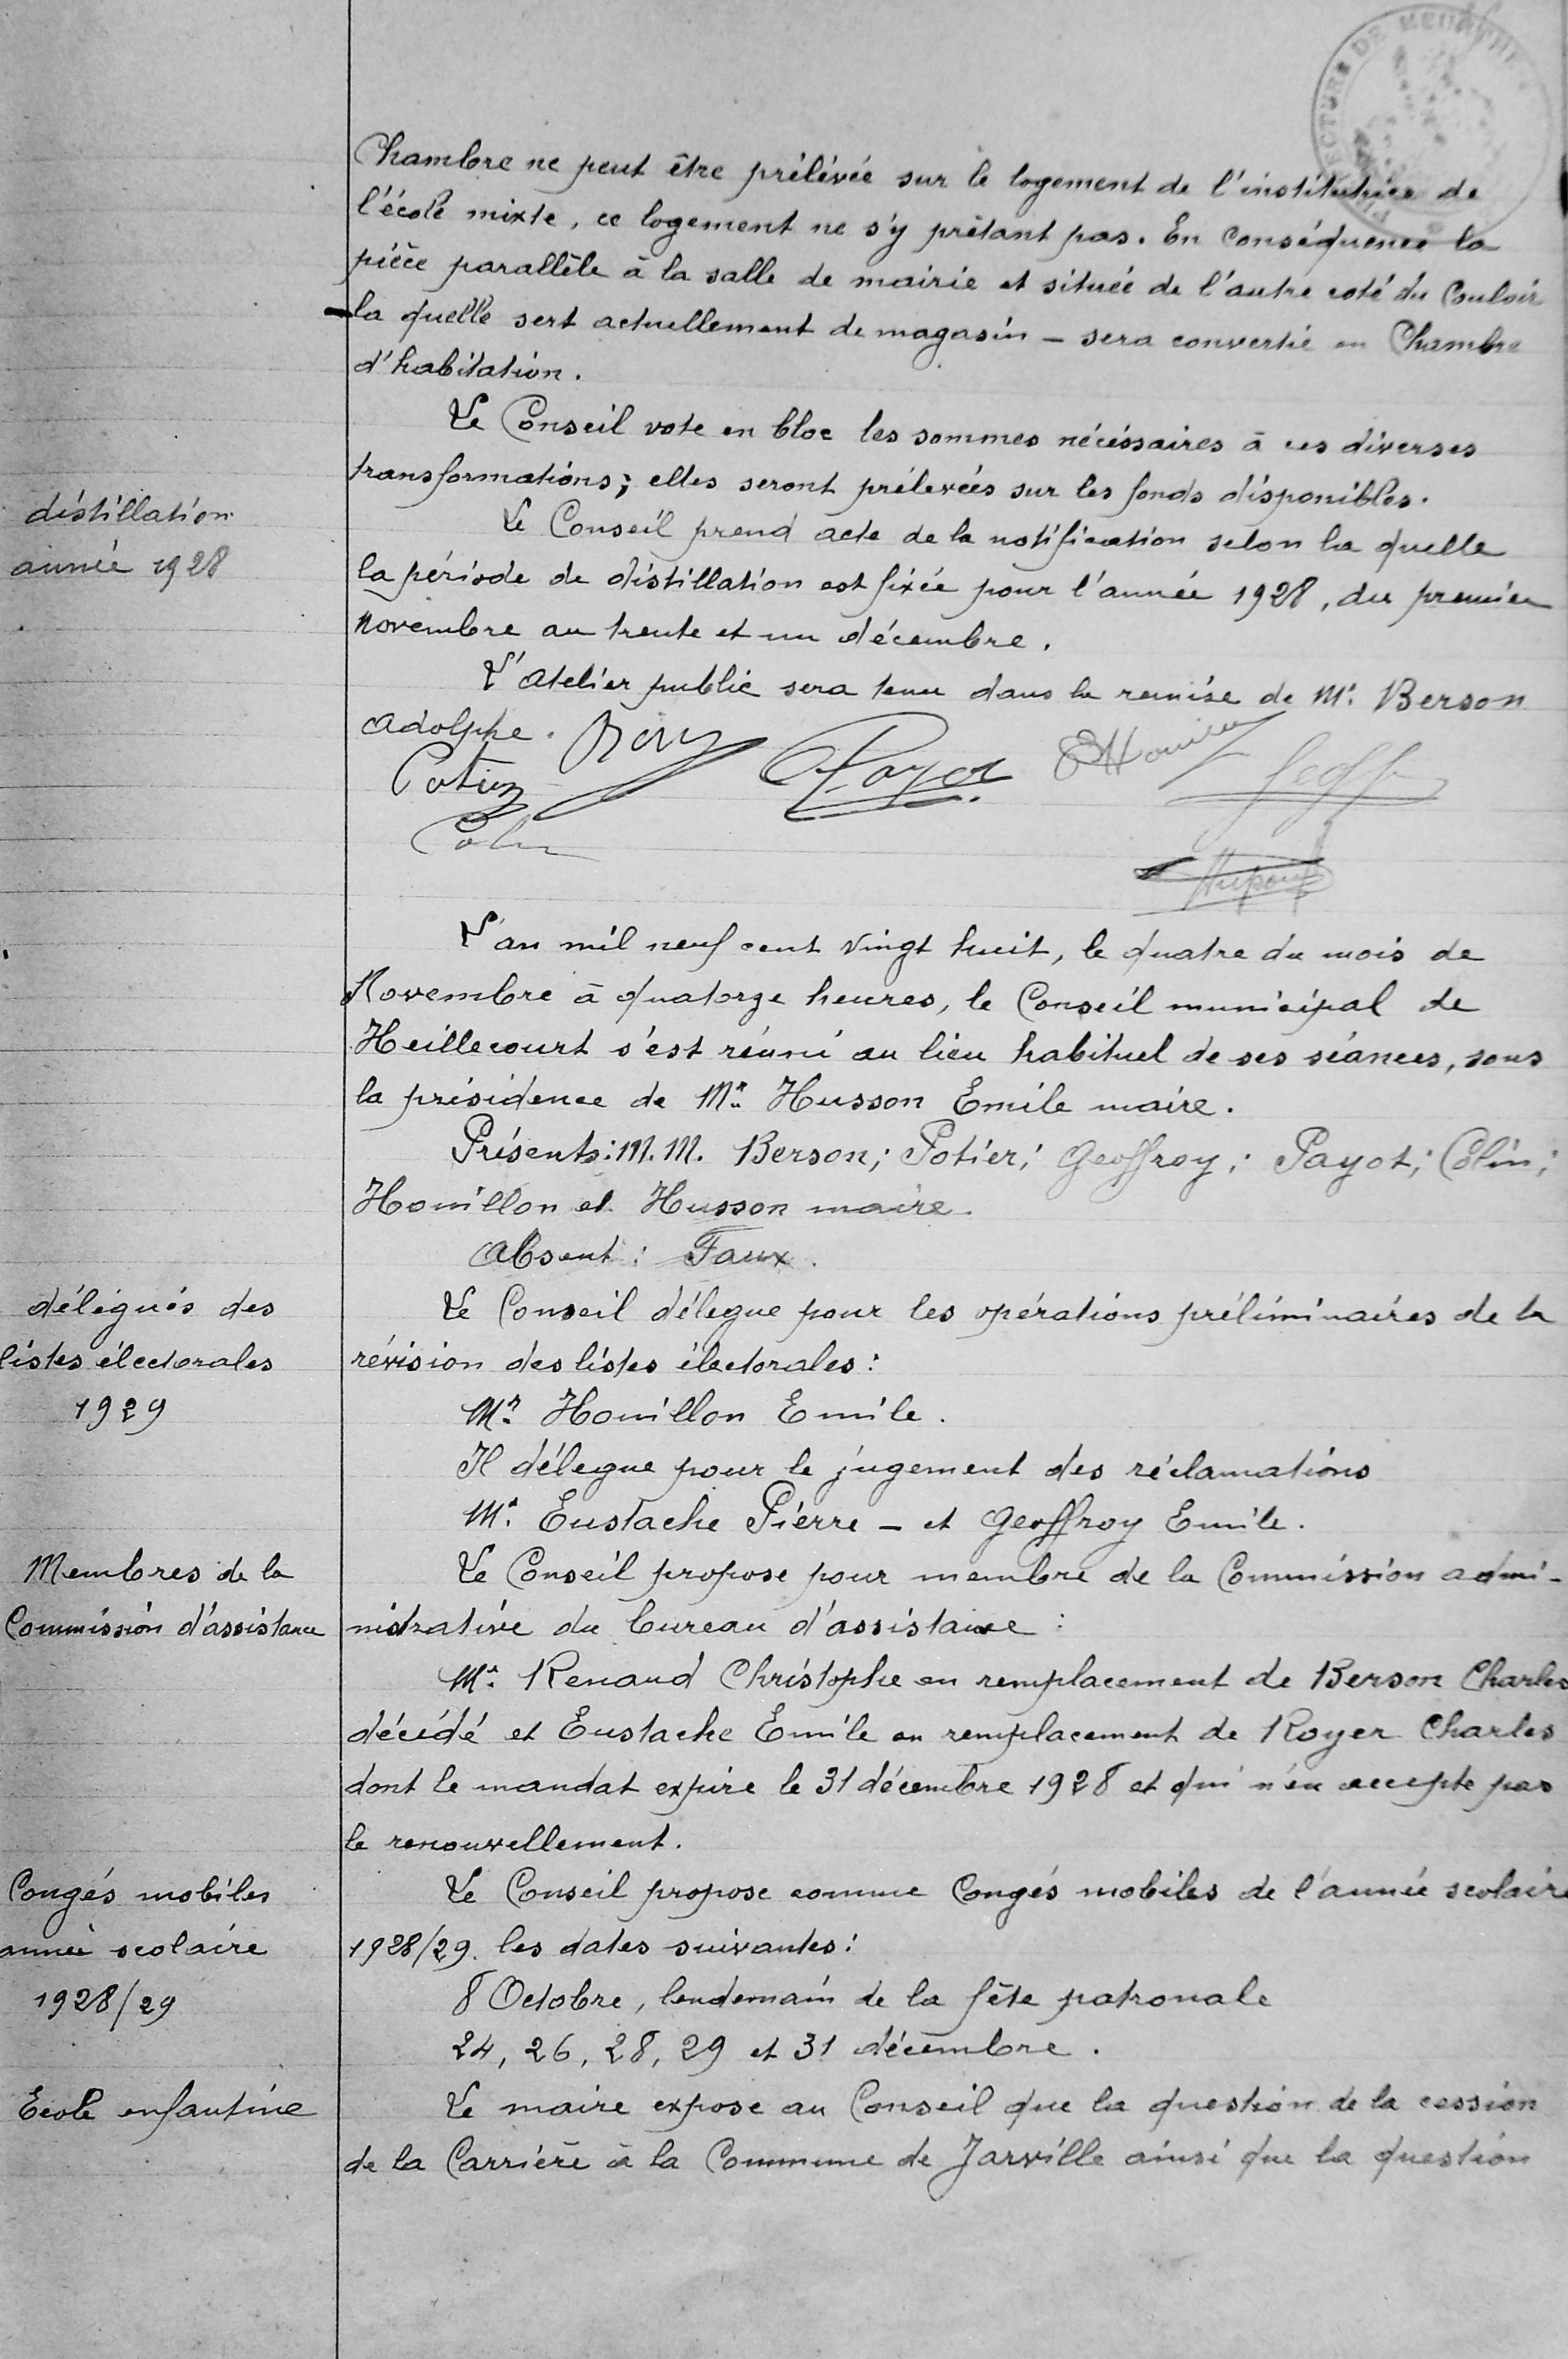 Chambre ne peut être prélévée sur le logement de l'institutrice de
l'école mixte, ce logement ne s'y prêtant pas. En conséquence la
pièce parallèle à la salle de mairie et située de l'autre coté du Couloir
- la quelle sert actuellement de magasin - sera convertie en Chambre
d'habitation.
Le Conseil vote en bloc les sommes nécéssaires à ces diverses
transformations; elles seront prélevées sur les fonds disponibles.
distillation
année 1928
Le Conseil prend acte de la notification selon la quelle
la période de distillation est fixée pour l'année 1928, du premier
Novembre au trente et un décembre.
L'atelier public sera tenu dans la remise de Mr. Berson
Adolphe.
Potier
Payot
Colin
L'an mil neuf cent vingt huit, le quatre du mois de
Novembre à quatorze heures, le Conseil municipal de
Heillecourt s'est réuni au lieu habituel de ses séances, sous
la présidence de Mr. Husson Emile maire.
Présents: M.M. Berson; Potier; Geoffroy; Payot; Colin;
Houillon et Husson maire.
Absent: Faux.
délégués des
listes électorales
1929
Le Conseil délegue pour les opérations préliminaires de la
révision des listes électorales:
Mr. Houillon Emile.
Il délegue pour le jugement des réclamations
Mr. Eustache Pierre - et Geoffroy Emile.
Membres de la
Commission d'assistance
Le Conseil propose pour membre de la Commission admi-
nistrative du bureau d'assistance:
Mr. Renaud Christophe en remplacement de Berson Charles
décédé et Eustache Emile en remplacement de Royer Charles
dont le mandat expire le 31 décembre 1928 et qui n'en accepte pas
le renouvellement.
Congés mobiles
année scolaire
1928/29
Le Conseil propose comme Congés mobiles de l'année scolaire
1928/29. les dates suivantes:
8 Octobre, lendemain de la fête patronale
24, 26, 28, 29 et 31 décembre.
Ecole enfantine
Le maire expose au Conseil que la question de la cession
de la Carrière à la Commune de Jarville ainsi que la question